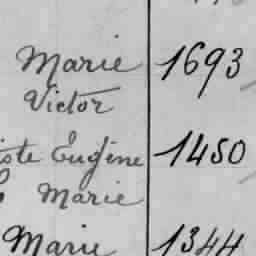 Marie 1693
Victor
iste Eugène 1450
Marie
Marie 1344